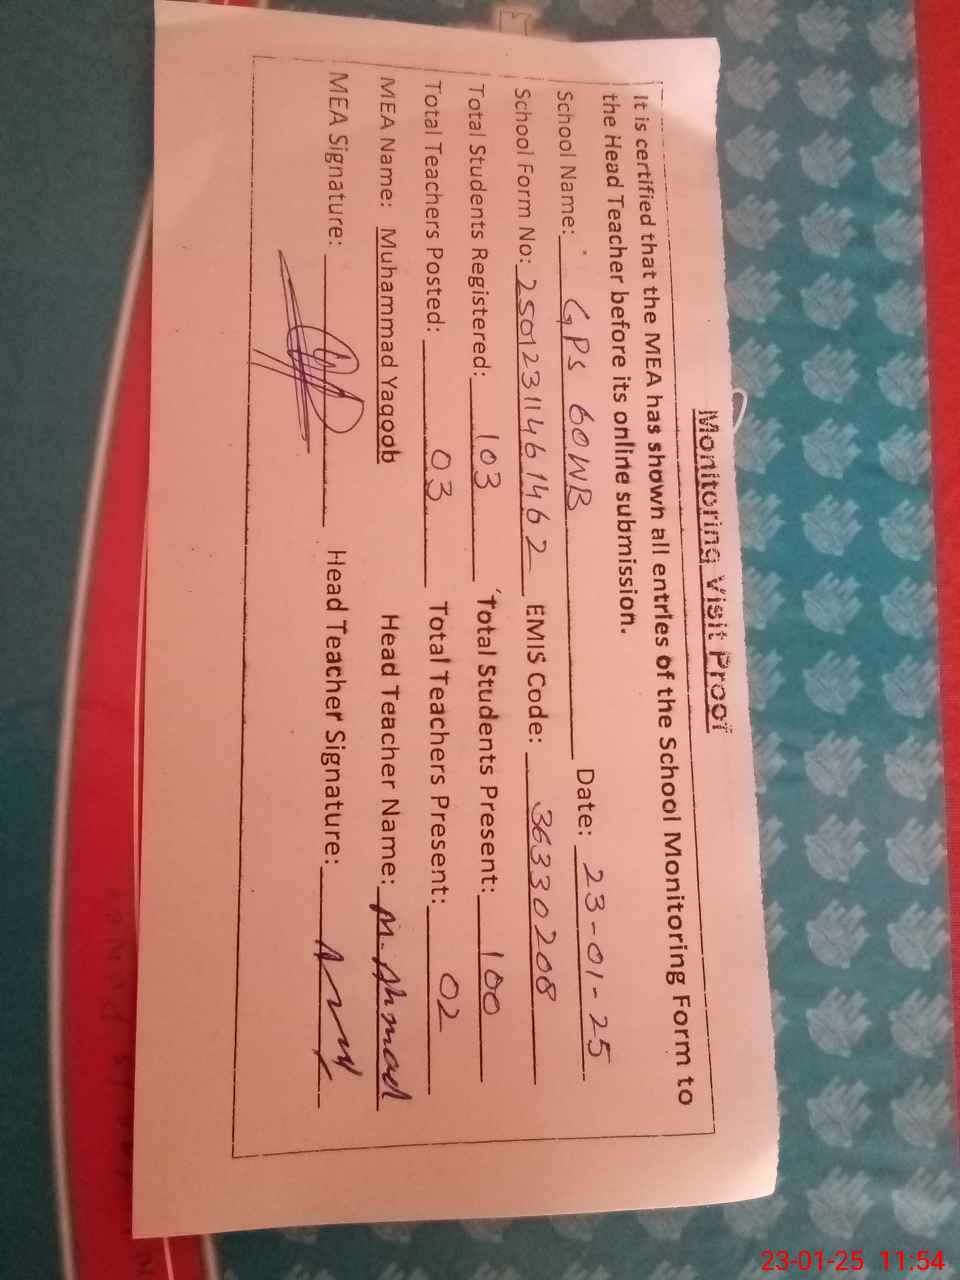 Monitoring Visit Proof
It is certified that the MEA has shown all entries of the School Monitoring Form to
the Head Teacher before its online submission.
School Name: GPS 60WB Date: 23-01-25
School Form No: 2501231146 1462 EMIS Code: 36330208
Total Students Registered: 103 Total Students Present: 100
Total Teachers Posted: 03 Total Teachers Present: 02
MEA Name: Muhammad Yaqoob Head Teacher Name: M. Ahmad
MEA Signature: Head Teacher Signature:
23-01-25 11:54